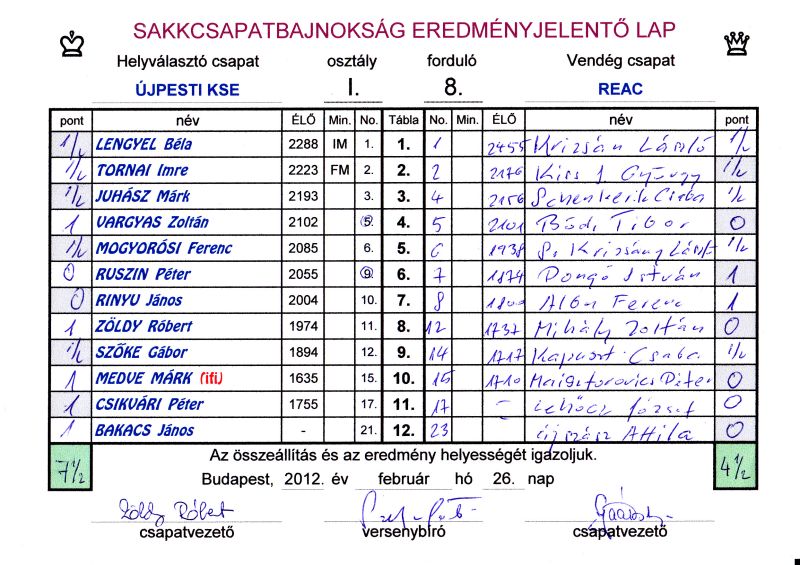 SAKKCSAPATBAJNOKSÁG EREDMÉNYJELENTŐ LAP
Helyválasztó csapat osztály forduló Vendég csapat
ÚJPESTI KSE I. 8. REAC
pont név ÉLŐ Min. No. Tábla No. Min. ÉLŐ név pont
1/2 LENGYEL Béla 2288 IM 1. 1. 1 2455 Krizsán László 1/2
1/2 TORNAI Imre 2223 FM 2. 2. 2 2176 Kiss J György 1/2
1/2 JUHÁSZ Márk 2193 3. 3. 4 2156 Csaba 1/2
1 VARGYAS Zoltán 2102 5. 4. 5 2101 Bódi Tibor 0
1/2 MOGYORÓSI Ferenc 2085 6. 5. 6 1938 Krizsány 1/2
0 RUSZIN Péter 2055 9. 6. 7 1874 Dongó István 1
0 RINYU János 2004 10. 7. 8 1800 Albn Ferenc 1
1 ZÖLDY Róbert 1974 11. 8. 12 1737 Mihály Zoltán 0
1/2 SZŐKE Gábor 1894 12. 9. 14 1717 Kapuszt Csaba 1/2
1 MEDVE MÁRK (ifi) 1635 15. 10. 15 1710 Péter 0
1 CSIKVÁRI Péter 1755 17. 11. 17 - József 0
1 BAKACS János - 21. 12. 23 Újszász Attila 0
Az összeállítás és az eredmény helyességét igazoljuk.
7 1/2 Budapest, 2012. év február hó 26. nap 4 1/2
Zöldy Róbert
csapatvezető versenybíró csapatvezető